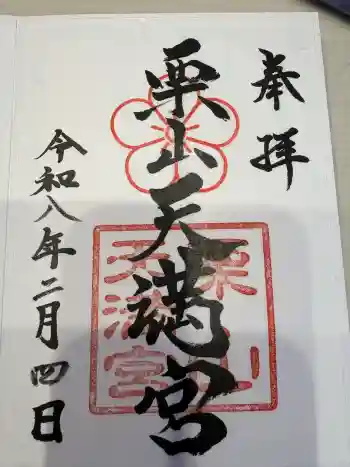 奉拝
栗山天満宮
令和八年二月四日
栗山
天満宮